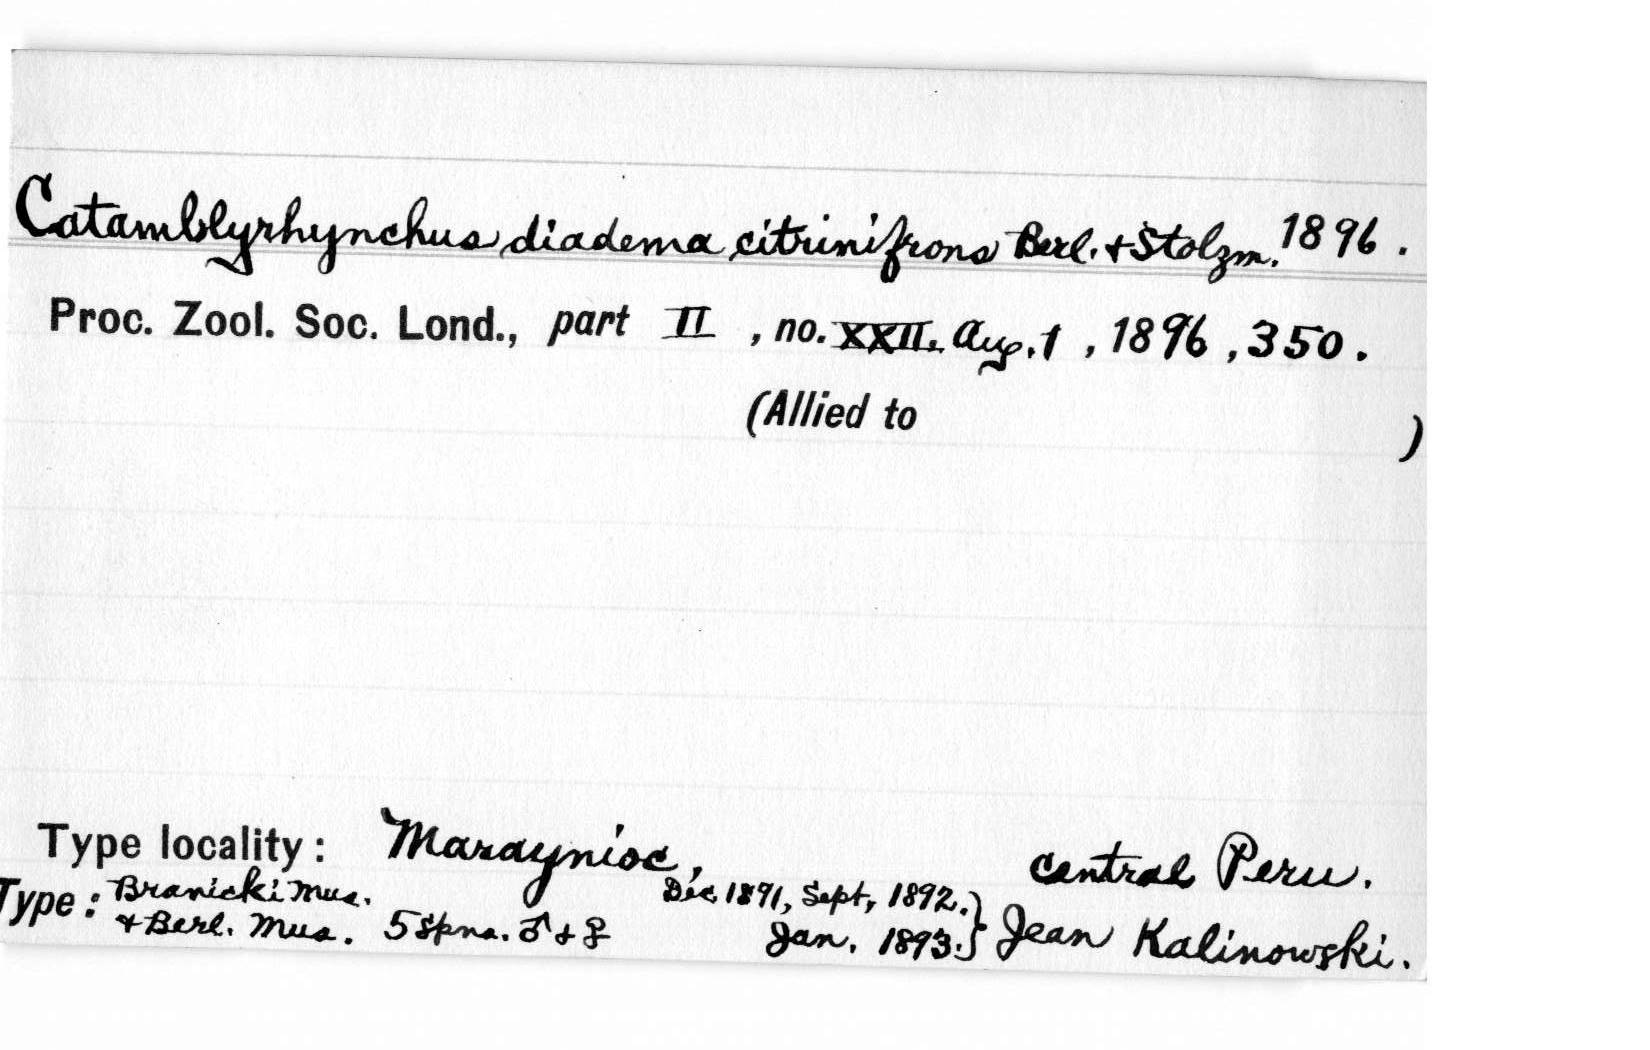 Catamblyrhynchus diadema citrinifrons Berl. & Stolzm. 1896.
Proc. Zool. Soc. Lond., part II, no. XXII. Aug. 1, 1896, 350.
(Allied to )
Type locality: Maraynioc, Central Peru.
Type: Branicki Mus. & Berl. Mus. 5 spns. ♂ & ♀ Dec. 1891, Sept, 1892. Jan. 1893.} Jean Kalinowski.